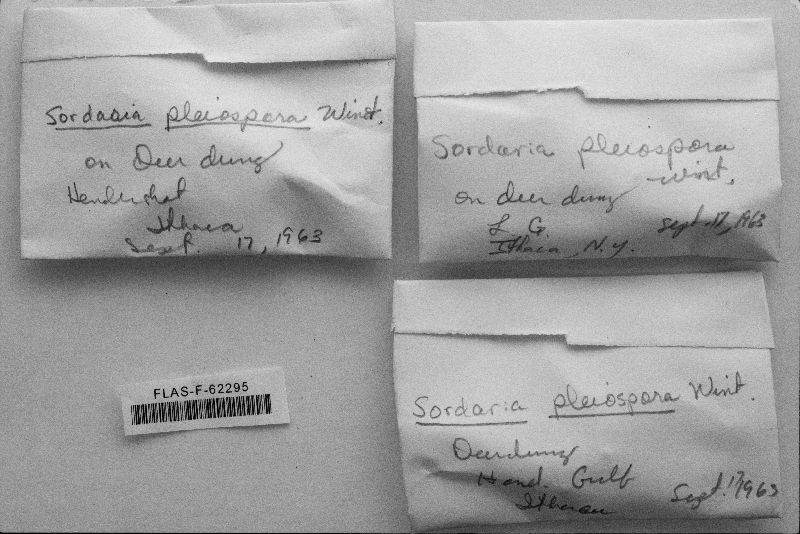 Sordaria pleiospora Wint.
on Deer dung
Ithaca
Sept. 17, 1963
Sordaria pleiospora
Wint.
on deer dung
L. G. Sept. 17, 1963
Ithaca, N.Y.
FLAS-F-62295
Sordaria pleiospora Wint.
Deer dung
Hend. Gulf
Ithaca Sept. 17 1963